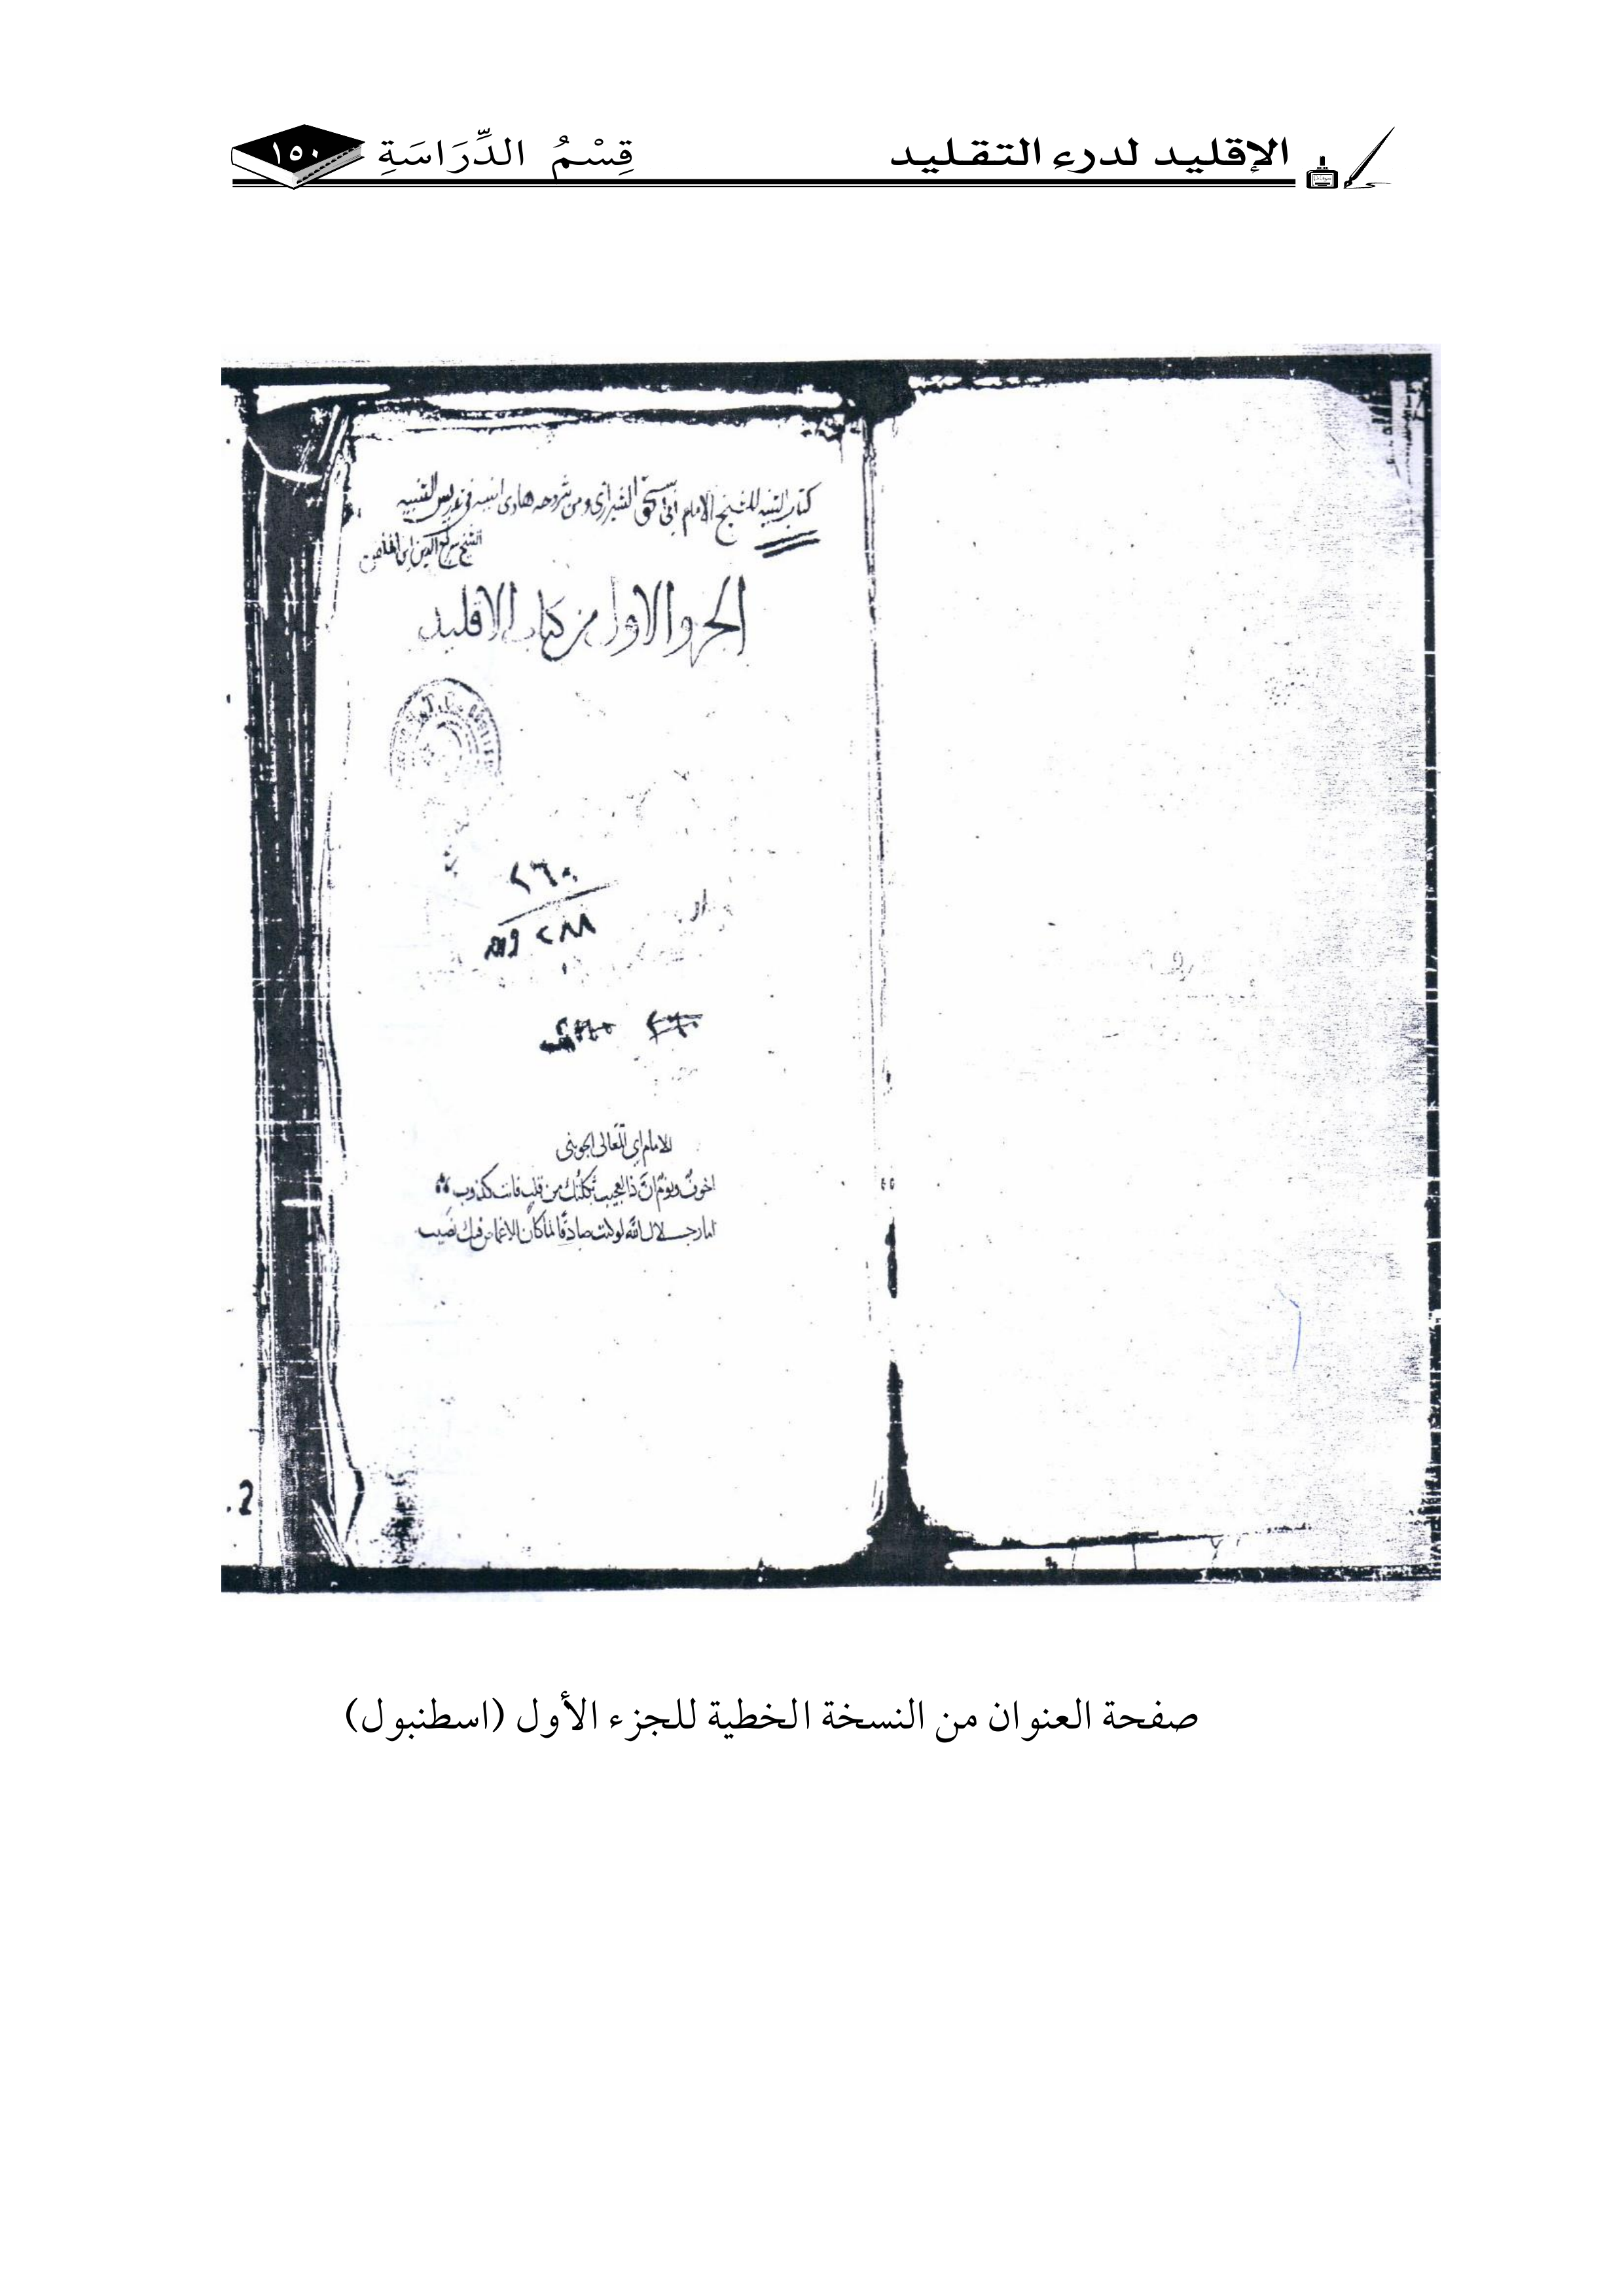 الإقليد لدرء التقليد
قِسْمُ الدِّرَاسَةِ
١٥٠
كتاب التنبيه للشيخ الامام ابي اسحق الشيرازي ومن شروحه هادي النبيه في تدريس التنبيه
الشيخ سراج الدين ابن الملقن
الجزو الاول من كتاب الاقليد
٢٦٠
٢٨٨
٢٦٠
للامام ابي المعالي الجويني
من قلب فانت كذوب
اما وجلال الله لو كنت صادقا لما كان للاغماض فيك نصيب
2
صفحة العنوان من النسخة الخطية للجزء الأول (اسطنبول)